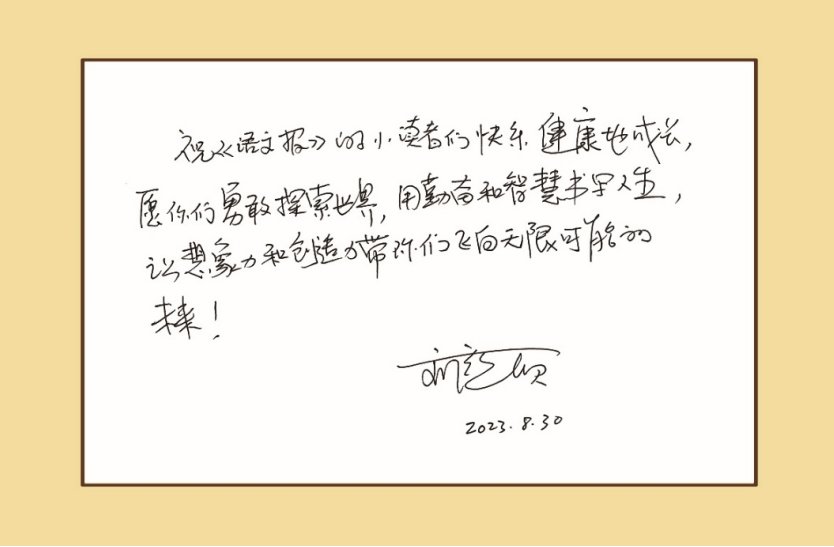 祝《语文报》的小读者们快乐健康地成长，
愿你们勇敢探索世界，用勤奋和智慧书写人生，
让想象力和创造力带你们飞向无限可能的
未来！
2023.8.30